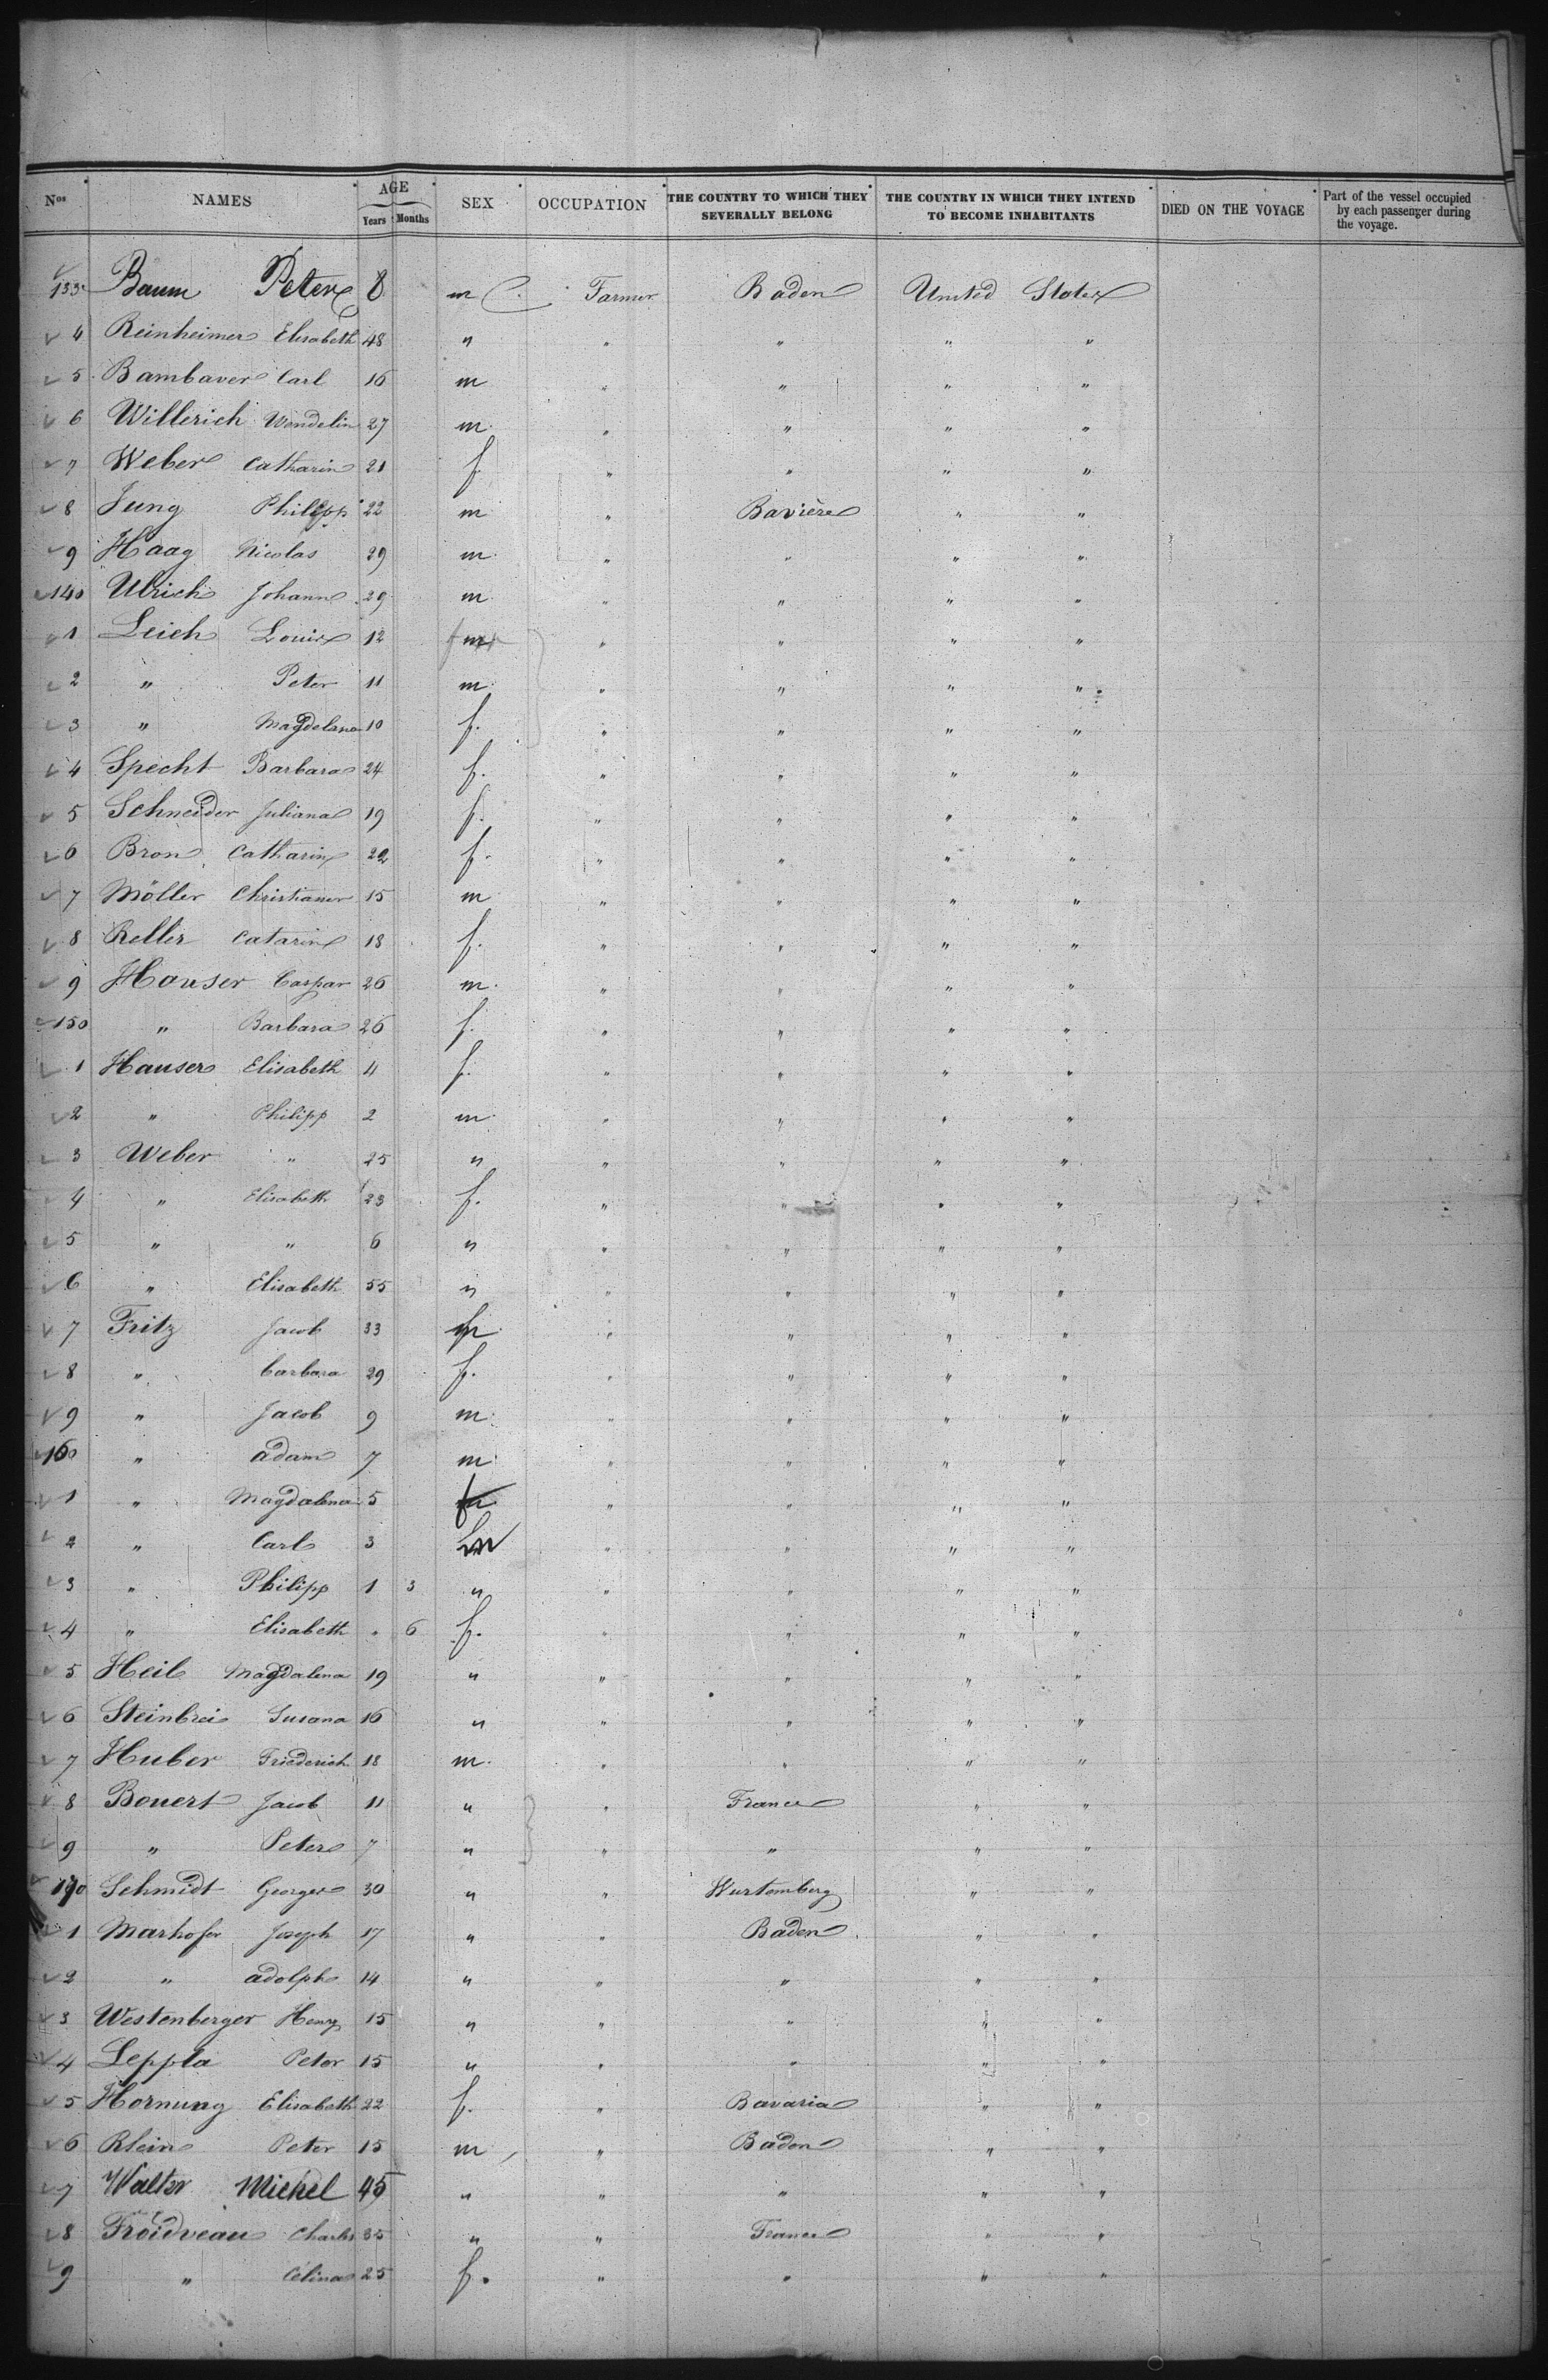 Nos NAMES AGE Years Months SEX OCCUPATION THE COUNTRY TO WHICH THEY SEVERALLY BELONG THE COUNTRY IN WHICH THEY INTEND TO BECOME INHABITANTS DIED ON THE VOYAGE Part of the vessel occupied by each passenger during the voyage.
133 Baum Peter 8 m Farmer Baden United States
4 Reinheimer Elisabeth 48 " " " " "
5 Bambaver Carl 16 m " " " "
6 Willerich Wendelin 27 m " " " "
7 Weber Catharin 21 f " " " "
8 Jung Philipp 22 m " Bavière " "
9 Haag Nicolas 29 m " " " "
140 Ulrich Johann 29 m " " " "
1 Leich Louis 12 " " " "
2 " Peter 11 m " " " "
3 " Magdelana 10 f. " " " "
4 Specht Barbara 24 f. " " " "
5 Schneider Juliana 19 f. " " " "
6 Bron Catharin 22 f. " " " "
7 Möller 15 m " " " "
8 Reller Catarin 18 f. " " " "
9 Hauser Caspar 26 m. " " " "
150 " Barbara 26 f. " " " "
1 Hauser Elisabeth 4 f. " " " "
2 " Philipp 2 m " " " "
3 Weber " 25 " " " " "
4 " Elisabeth 23 f. " " " "
5 " " 6 " " " " "
6 " Elisabeth 55 " " " " "
7 Fritz Jacob 33 m " " " "
8 " barbara 29 f. " " " "
9 " Jacob 9 m " " " "
160 " adam 7 m " " " "
1 " Magdalena 5 f " " " "
2 " Carl 3 m " " " "
3 " Philipp 1 3 " " " " "
4 " Elisabeth " 6 f. " " " "
5 Heil Magdalena 19 " " " " "
6 Steinbrei Susana 16 " " " " "
7 Huber Friederich 18 m. " " " "
8 Bouert Jacob 11 " " France " "
9 " Peter 7 " " " " "
170 Schmidt George 30 " " Wurtemberg " "
1 Marhofer Joseph 17 " " Baden " "
2 " adolph 14 " " " " "
3 Westenberger Henry 15 " " " " "
4 Leppla Peter 15 " " " " "
5 Hornung Elisabeth 22 f. " Bavaria " "
6 Klein Peter 15 m " Baden " "
7 Walter Michel 45 " " " " "
8 Froidveau Charles 35 " " France " "
9 " Célina 25 f. " " " "